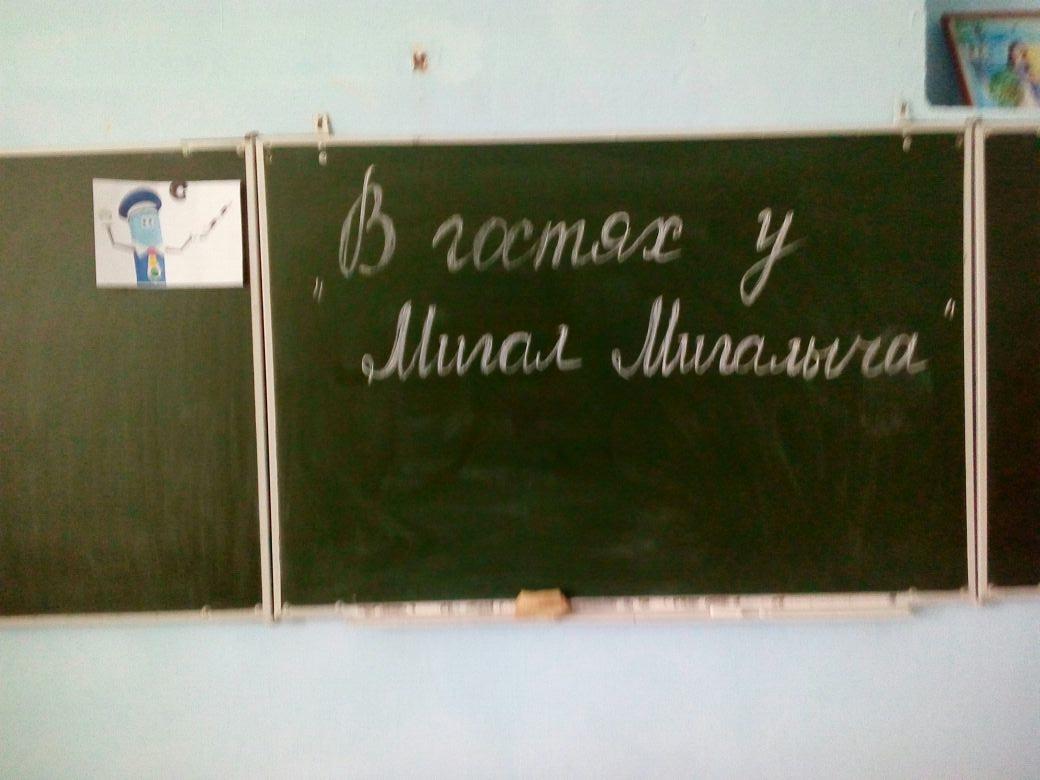 В гостях у
"Мигал Мигалыча"